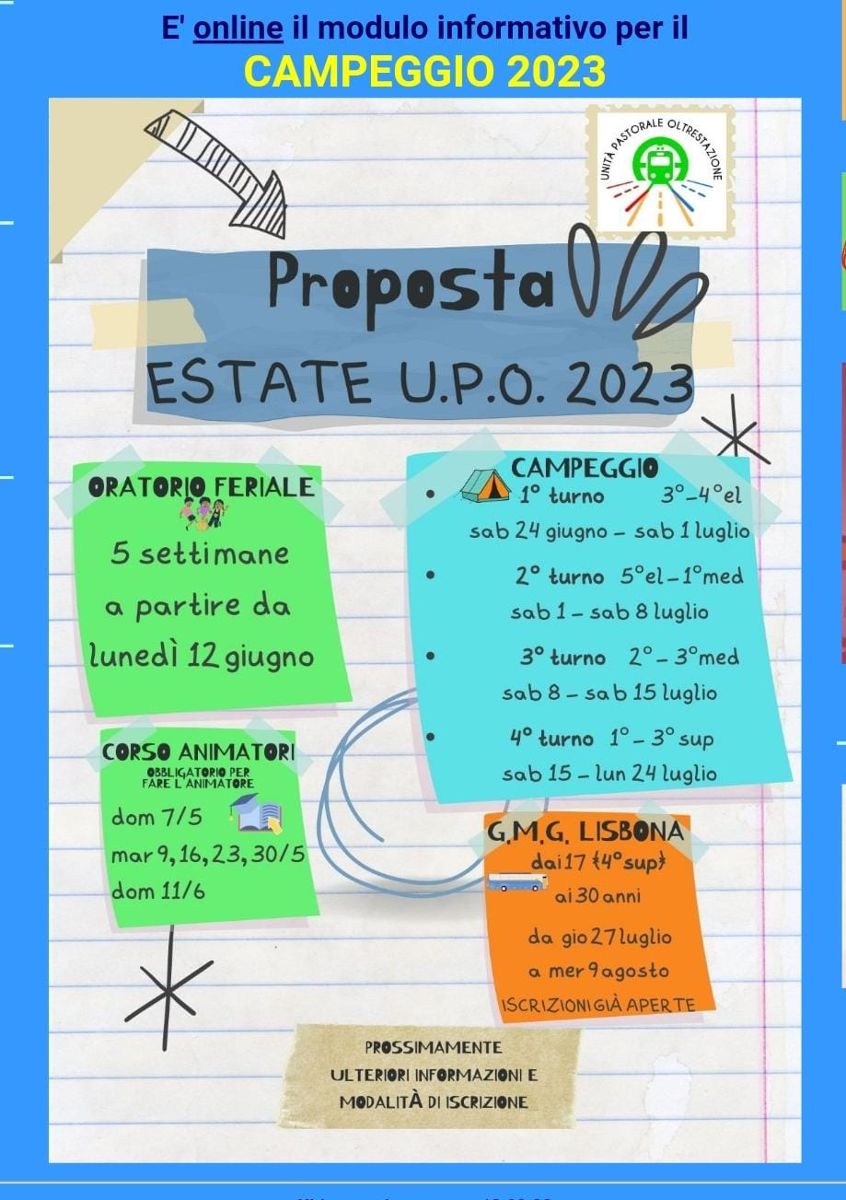 E' online il modulo informativo per il
CAMPEGGIO 2023
UNITÀ PASTORALE OLTRESTAZIONE
Proposta
ESTATE U.P.O. 2023
ORATORIO FERIALE
5 settimane
a partire da
lunedÌ 12 giugno
CAMPEGGIO
• 1° turno 3°-4°el
sab 24 giugno - sab 1 luglio
• 2° turno 5°el-1°med
sab 1 - sab 8 luglio
• 3° turno 2°-3°med
sab 8 - sab 15 luglio
• 4° turno 1°-3°sup
sab 15 - lun 24 luglio
CORSO ANIMATORI
OBBLIGATORIO PER
FARE L'ANIMATORE
dom 7/5
mar 9, 16, 23, 30/5
dom 11/6
G.M.G. LISBONA
dai 17 (4°sup)
ai 30 anni
da gio 27 luglio
a mer 9 agosto
ISCRIZIONI GIÀ APERTE
PROSSIMAMENTE
ULTERIORI INFORMAZIONI E
MODALITÀ DI ISCRIZIONE